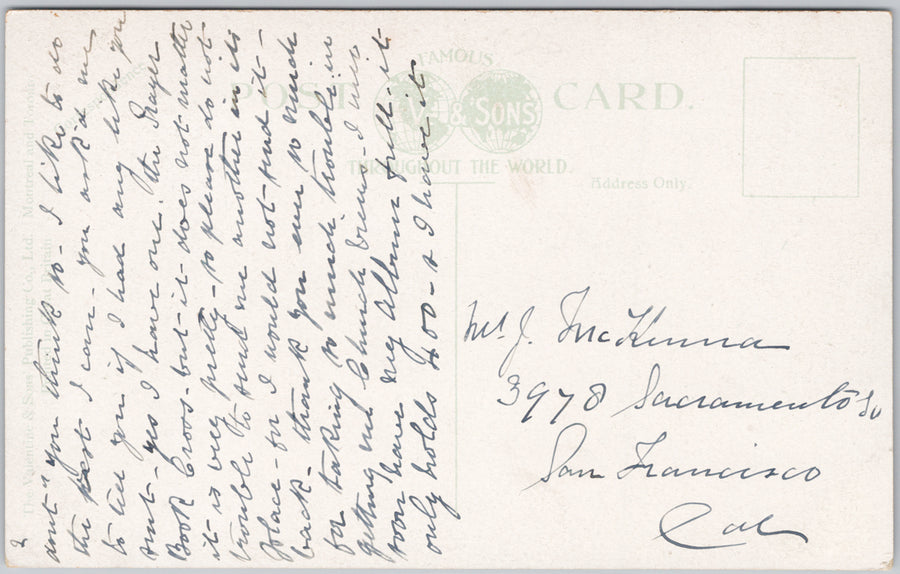 2
dont you think so - I like to do
the best I can - you ask'd me
to tell you if I had any like you
sent - yes I have one. "the Prayer
Book Cross - but it does not matter
it is very pretty - so please do not
trouble to send me another in its
place - or I would not send it -
back. thank you ever so much
for taking so much trouble in
getting me Church views - I will
soon have my Album full - it
only holds 400 - & I have its
Correspondence
POST CARD.
FAMOUS
V. & SONS
THROUGHOUT THE WORLD.
Address Only.
The Valentine & Sons Publishing Co., Ltd. Montreal and Toronto
Printed in Great Britain
Mr. J. McKenna
3978 Sacramento St
San Francisco
Cal